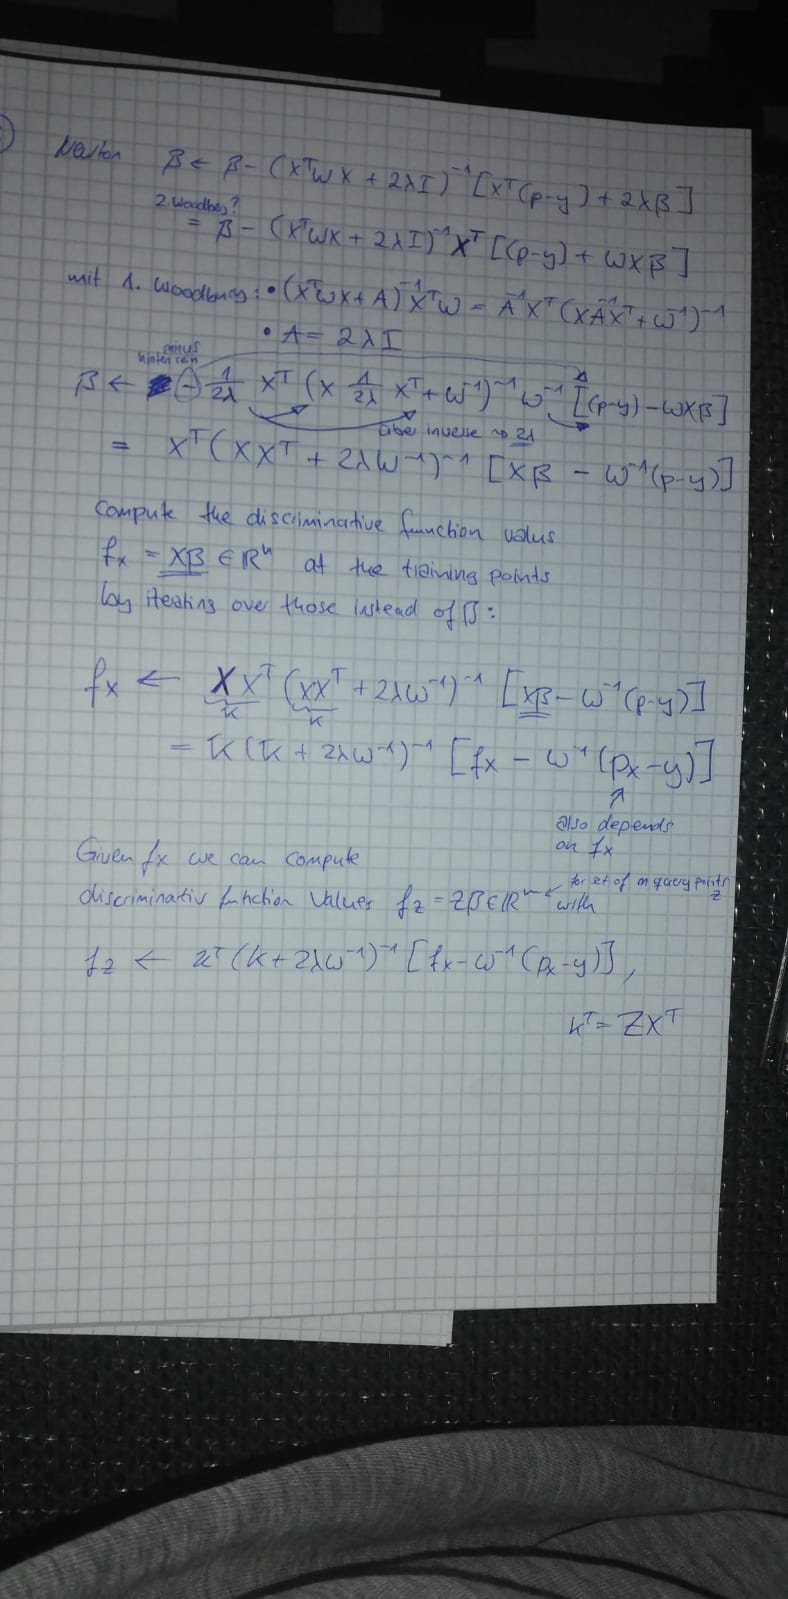 Newton β ← β - (XᵀWX + 2λI)⁻¹ [Xᵀ(p-y) + 2λβ]
2. Woodbury?
= β - (XᵀWX + 2λI)⁻¹ Xᵀ [(p-y) + WXβ]
mit 1. Woodbury: • (XᵀWX+A)⁻¹XᵀW = A⁻¹Xᵀ(XA⁻¹Xᵀ+W⁻¹)⁻¹
• A = 2λI
minus
hinten rein
β ← - 1/2λ Xᵀ (X 1/2λ Xᵀ + W⁻¹)⁻¹ W⁻¹ [(p-y) - WXβ]
über inverse → 2λ
= Xᵀ(XXᵀ + 2λW⁻¹)⁻¹ [Xβ - W⁻¹(p-y)]
Compute the discriminative function values
fx = Xβ ∈ ℝⁿ at the training points
by iterating over those instead of β:
fx ← XXᵀ (XXᵀ + 2λW⁻¹)⁻¹ [Xβ - W⁻¹(p-y)]
K K
= K(K + 2λW⁻¹)⁻¹ [fx - W⁻¹(px-y)]
also depends
on fx
Given fx we can compute
discriminativ function values fz = Zβ ∈ ℝᵐ ← for set of m query points Z
with
fz ← κᵀ(K+2λW⁻¹)⁻¹ [fx-W⁻¹(px-y)],
κᵀ = ZXᵀ